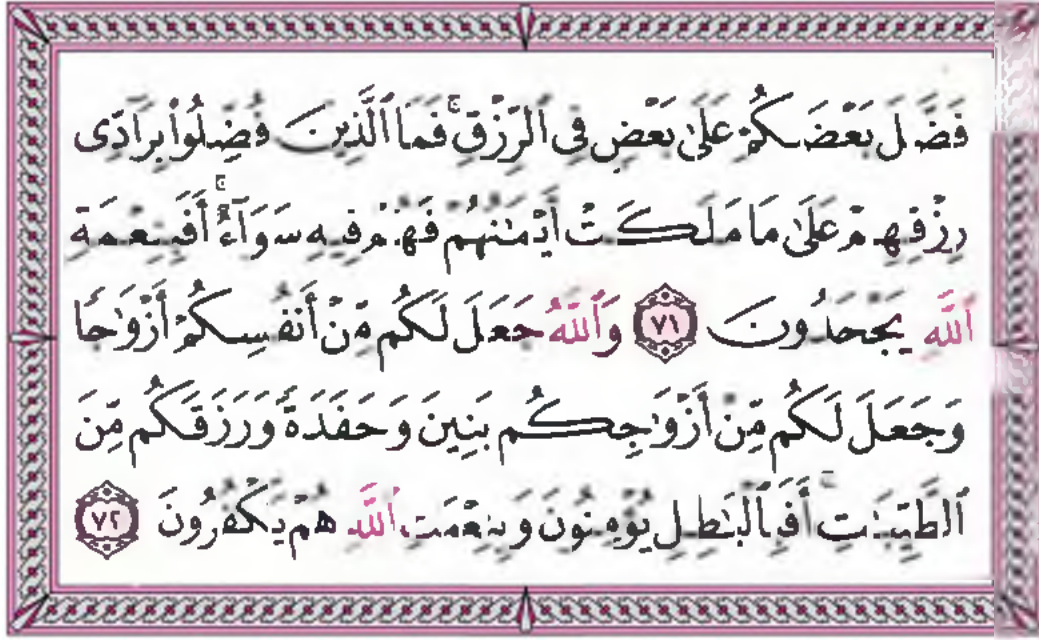 فَضَّلَ بَعْضَكُمْ عَلَىٰ بَعْضٍ فِى ٱلرِّزْقِ ۚ فَمَا ٱلَّذِينَ فُضِّلُوا۟ بِرَآدِّى
رِزْقِهِمْ عَلَىٰ مَا مَلَكَتْ أَيْمَـٰنُهُمْ فَهُمْ فِيهِ سَوَآءٌ ۚ أَفَبِنِعْمَةِ
ٱللَّهِ يَجْحَدُونَ ٧١ وَٱللَّهُ جَعَلَ لَكُم مِّنْ أَنفُسِكُمْ أَزْوَٰجًا
وَجَعَلَ لَكُم مِّنْ أَزْوَٰجِكُم بَنِينَ وَحَفَدَةً وَرَزَقَكُم مِّنَ
ٱلطَّيِّبَـٰتِ ۚ أَفَبِٱلْبَـٰطِلِ يُؤْمِنُونَ وَبِنِعْمَتِ ٱللَّهِ هُمْ يَكْفُرُونَ ٧٢